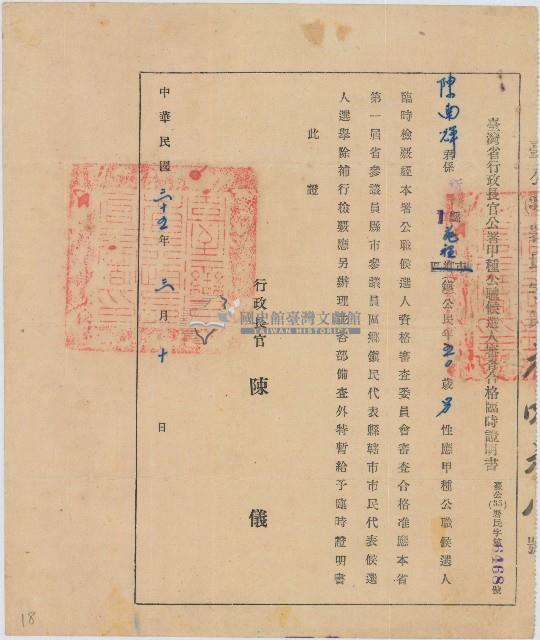 臺灣省行政長官公署甲種公職候選人審查合格臨時證明書
臺公(35)署民字第6468號
陳南輝君係 縣市苑裡區鄉鎮公民年五〇歲男性應甲種公職候選人
臨時檢覈經本署公職候選人資格審查委員會審查合格准應本省
第一屆省參議員縣市參議員區鄉鎮民代表縣轄市市民代表候選
人選舉除補行檢覈應另辦理並咨部備查外特暫給予臨時證明書
此證
行政長官 陳儀
中華民國三十五年三月十日
國史館臺灣文獻館
TAIWAN HISTORICA
18